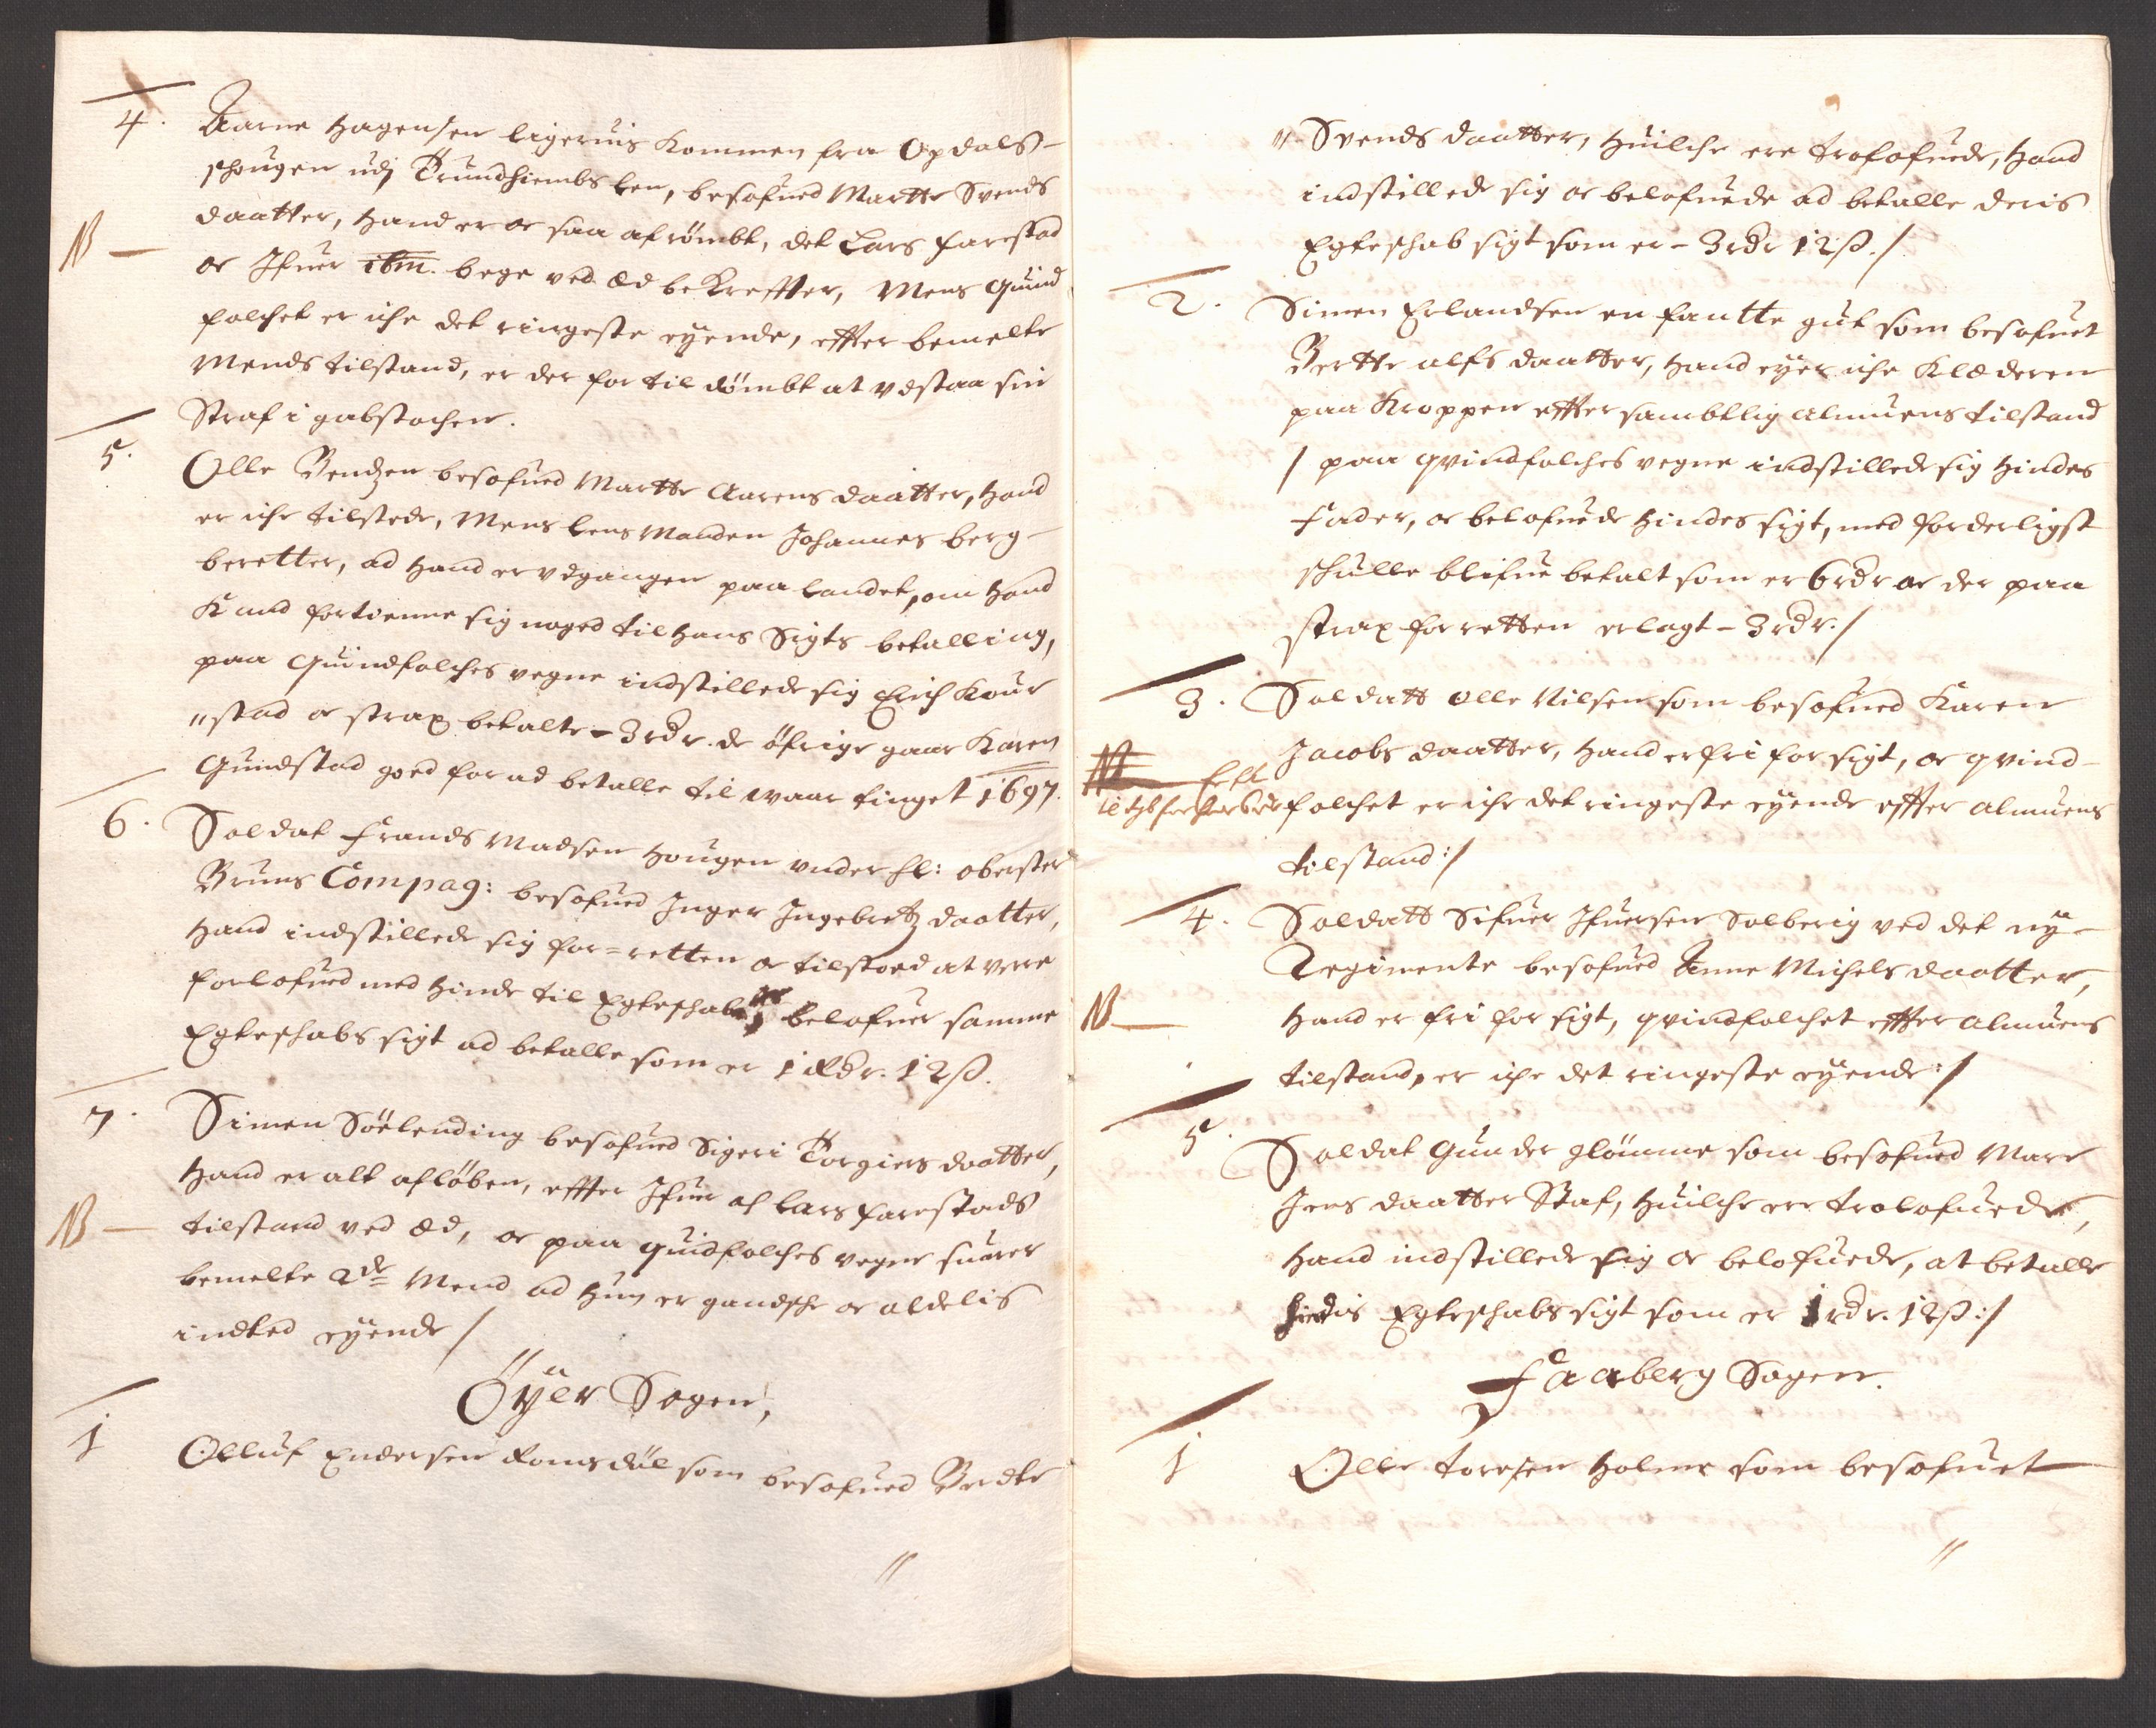 4. Aarne Hagensen ligeruis kommen fra Opdals-
schougen udj Trundhiembs Len, besofued Martte Svends
daatter, Hand er oc saa afrömbt, det Lars Farestad
NB — oc Ifuer ibm. bege ved Æd bekreffter, Mens Quind
folchet er iche det ringeste eyende, effter bemelte
Mends tilstand, er der for til dömbt at vdstaa sin
Straf i gabstochen.
5. Olle Bendzen besofued Martte Aarens daatter, Hand
er iche tilstede, Mens Lens Manden Johannes Berg
beretter, ad Hand er vdgangen paa Landet, om Hand
Kand fortienne sig noged til Hans Sigts betalling,
paa Quindfolches vegne indstillede sig Erich Kour
"stad oc strax betalte - 3 rdr. de öfrige gaar Karen
Gundstad goed for ad betalle til waar tinget 1697.
6. Soldat Frands Madsen Hougen vnder Hl: Oberster
Bruns Compag: besofued Inger Ingebretz daatter,
Hand indstillede sig for=retten oc tilstoed at vere
forlofued med Hinde til Egteschab, oc belofuer samme
Egteschabs sigt ad betalle som er 1 Rdr. 12 ß.
7. Simen Söelending besofued Sigeri Torgiers daatter,
Hand er alt aflöben, effter Ifuer af Lars Farestads
NB — tilstand ved Æd, oc paa quidfolches vegne suarer
bemelte 2de Mend ad Hun er gandsche oc aldelis
indted eyende /
Öyer Sogen,
1 Olluf Endersen Romsdal som besofued Berette
"
" Svends daatter, Huilche ere trolofuede, Hand
indstillede sig oc belofuede ad betalle deris
Egteschab sigt som er - 3 rdr 12 ß. /
2. Simen Erlandsen en fantte gut som besofuet
Bertte Alfs daatter, Hand eyer iche Klæderen
paa Kroppen effter sambtlig Almuens tilstand
/ paa qvindfolches vegne indstillede sig Hindes
Fader, oc belofuede Hindes sigt, med forderligst
schulle blifue betalt som er 6 rdr oc der paa
strax for retten erlagt - 3 rdr. /
3. Soldatt Olle Nilsen som besofued Karen
Jacobs daatter, Hand er fri for sigt, oc qvind-
folchet er iche det ringeste eyende effter Almuens
tilstand :/
4. Soldatt Sifuer Ifuersen Solberig ved det ny-
Regimente besofued Anne Michels daatter,
NB — Hand er fri for sigt, qvindfolchet effter Almuens
tilstand, er iche det ringeste eyende :/
5. Soldat Gunder Glömme som besofued Mare
Jens daatter Staf, Huilche ere trolofuede,
Hand indstillede sig oc belofuede, at betalle
Egteschabs sigt som er 1 rdr. 12 ß :/
Faaberg Sogen.
1 Olle Toresen Holme som besofuet
"